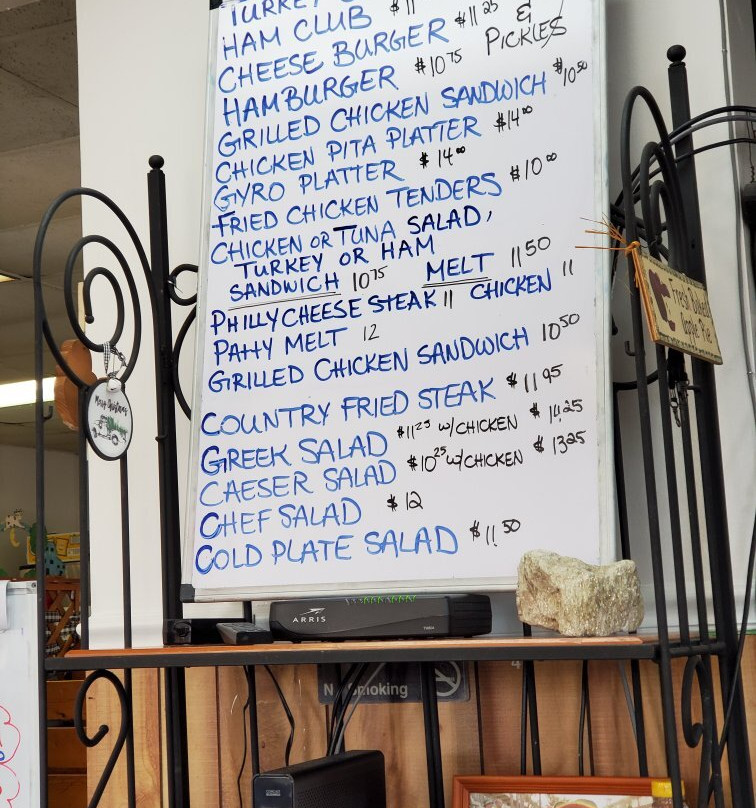 TURKEY
HAM CLUB $11
CHEESE BURGER $11 25 &
HAMBURGER $10 75 PICKLES
GRILLED CHICKEN SANDWICH $10 50
CHICKEN PITA PLATTER $14 00
GYRO PLATTER $14 00
FRIED CHICKEN TENDERS $10 00
CHICKEN OR TUNA SALAD,
TURKEY OR HAM
SANDWICH 10 75 MELT 11 50
PHILLY CHEESE STEAK 11 CHICKEN 11
PATTY MELT 12
GRILLED CHICKEN SANDWICH 10 50
COUNTRY FRIED STEAK $11 95
GREEK SALAD $11 25 W/CHICKEN $14.25
CAESER SALAD $10 25 W/CHICKEN $13 25
CHEF SALAD $12
COLD PLATE SALAD $11.50
Fresh Baked
Apple Pie
Merry Christmas
ARRIS
No Smoking